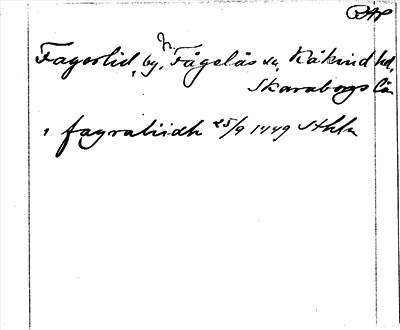 Fagerlid, by, N Fågelås sn, Kåkind hd,
Skaraborgs län
i fagraliidh 25/9 1449 Sthlm